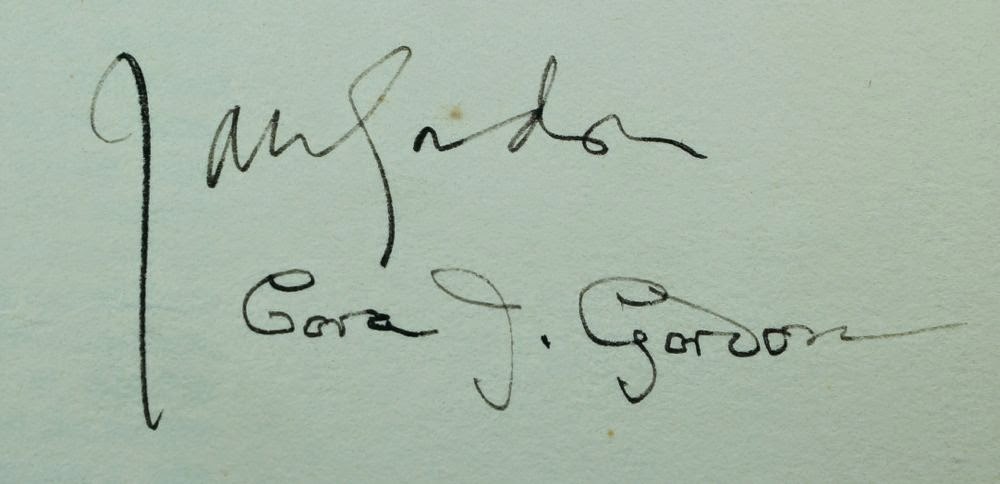 Jan Gordon
Cora J. Gordon